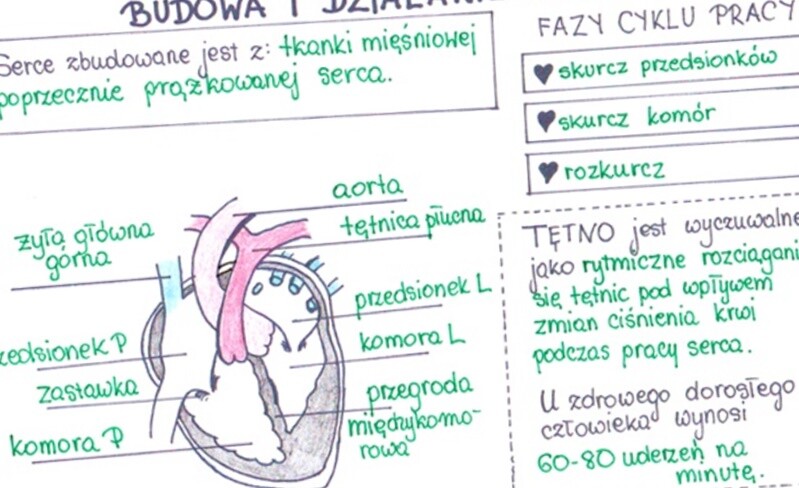 BUDOWA I
Serce zbudowane jest z: tkanki mięśniowej
poprzecznie prążkowanej serca.
aorta
tętnica płucna
żyła główna
górna
przedsionek L
komora L
przedsionek P
zastawka
przegroda
międzykomo-
rowa
komora P
FAZY CYKLU PRACY
skurcz przedsionków
skurcz komór
rozkurcz
TĘTNO jest wyczuwalne
jako rytmiczne rozciągani
się tętnic pod wpływem
zmian ciśnienia krwi
podczas pracy serca.
U zdrowego dorosłego
człowieka wynosi
60-80 uderzeń na
minutę.